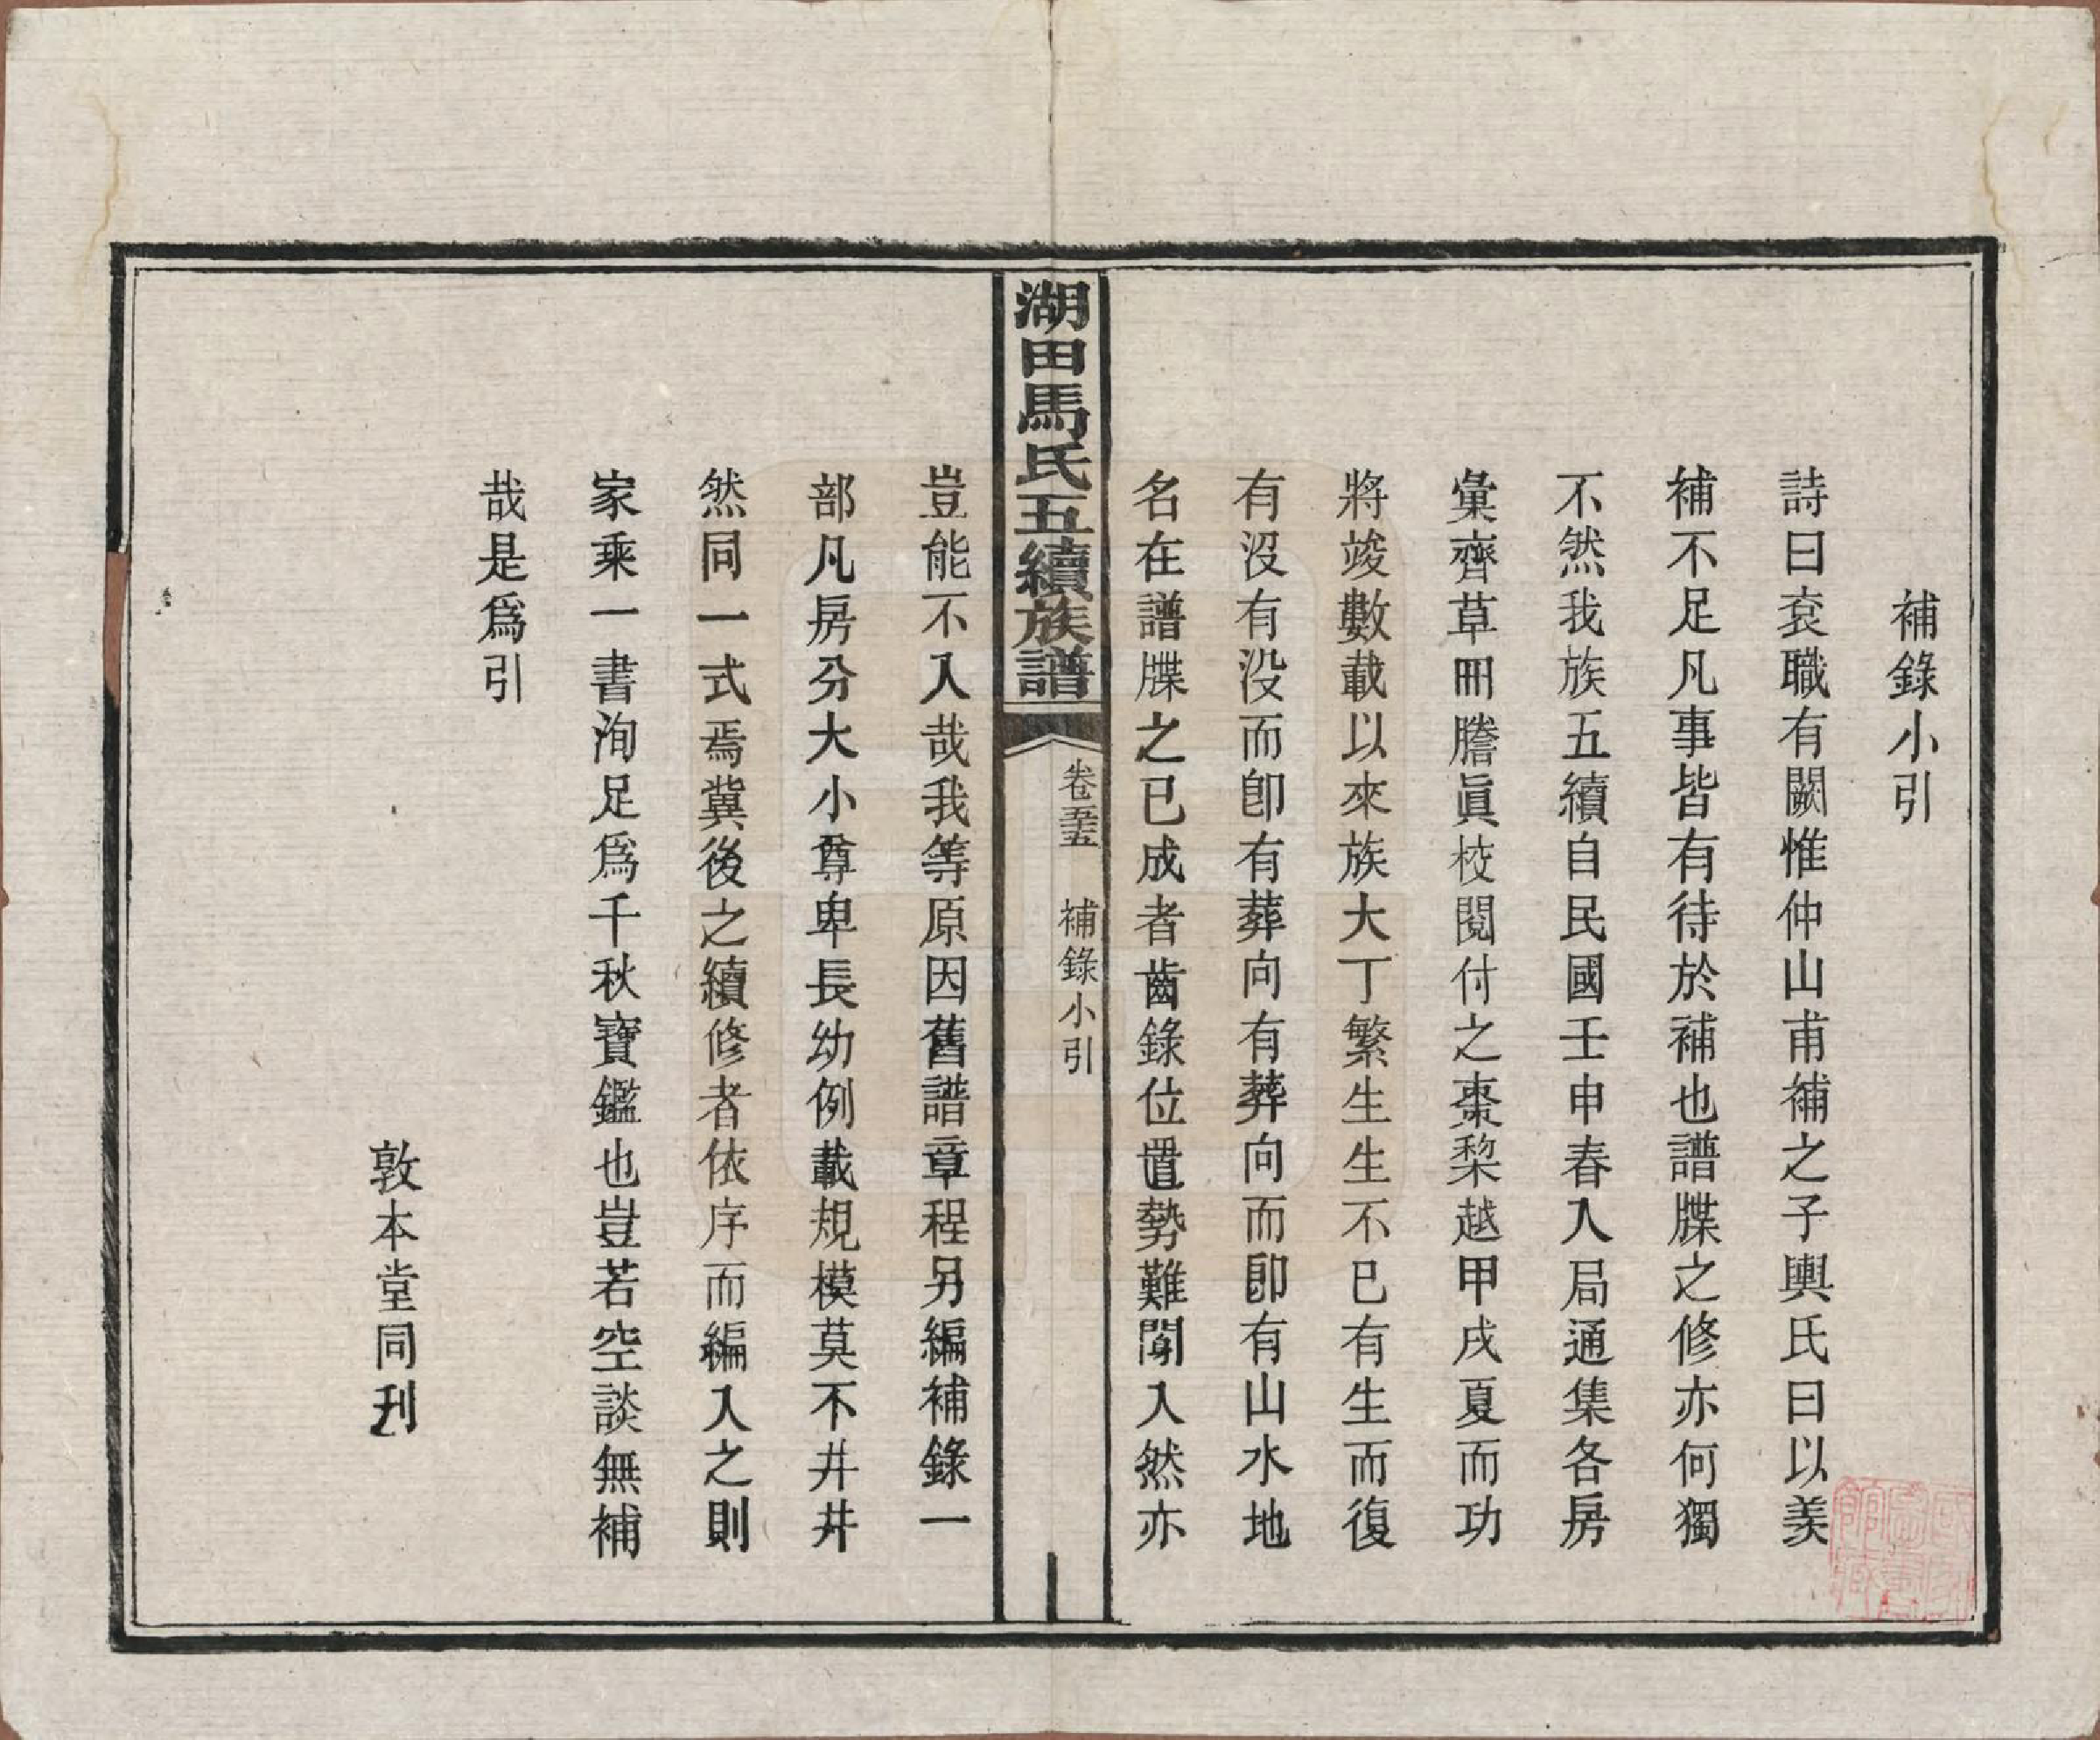 補錄小引
詩曰袞職有闕惟仲山甫補之子輿氏曰以羨
補不足凡事皆有待於補也譜牒之修亦何獨
不然我族五續自民國壬申春入局通集各房
彙齊草冊謄眞校閱付之棗棃越甲戌夏而功
將竣數載以來族大丁繁生生不已有生而復
有沒有沒而卽有葬向有葬向而卽有山水地
名在譜牒之已成者齒錄位置勢難闌入然亦
湖田馬氏五續族譜
卷五 補錄小引
豈能不入哉我等原因舊譜章程另編補錄一
部凡房分大小尊卑長幼例載規模莫不井井
然同一式焉冀後之續修者依序而編入之則
家乘一書洵足爲千秋寶鑑也豈若空談無補
哉是爲引
敦本堂同刊